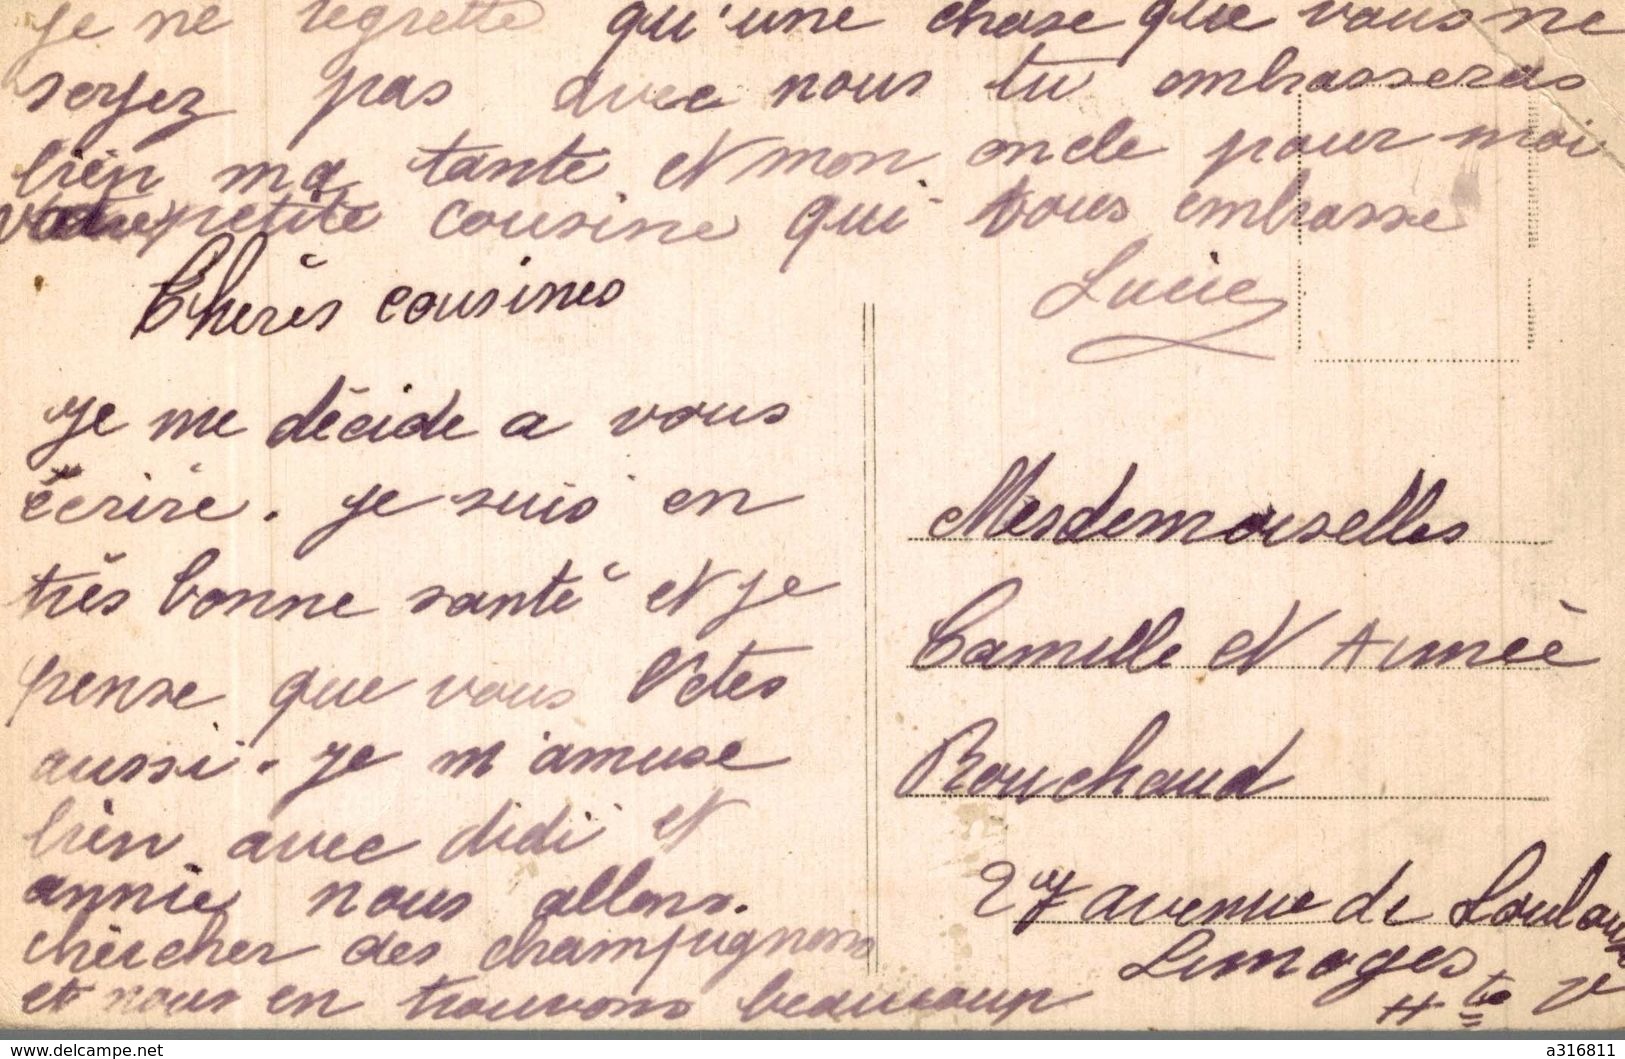 je ne regrette qu'une chose que vous ne
soyez pas avec nous tu embrasseras
bien ma tante et mon oncle pour moi
votre petite cousine qui vous embrasse
Lucie
Chères cousines
Je me décide a vous
écrire. je suis en
très bonne santé et je
pense que vous êtes
aussi. je m'amuse
bien avec didi et
annie nous allons.
chercher des champignons
et nous en trouvons beaucoup
Mesdemoiselles
Camille et Aimée
Bouchaud
27 avenue de Toulouse
Limoges
Hte V
www.delcampe.net
a316811